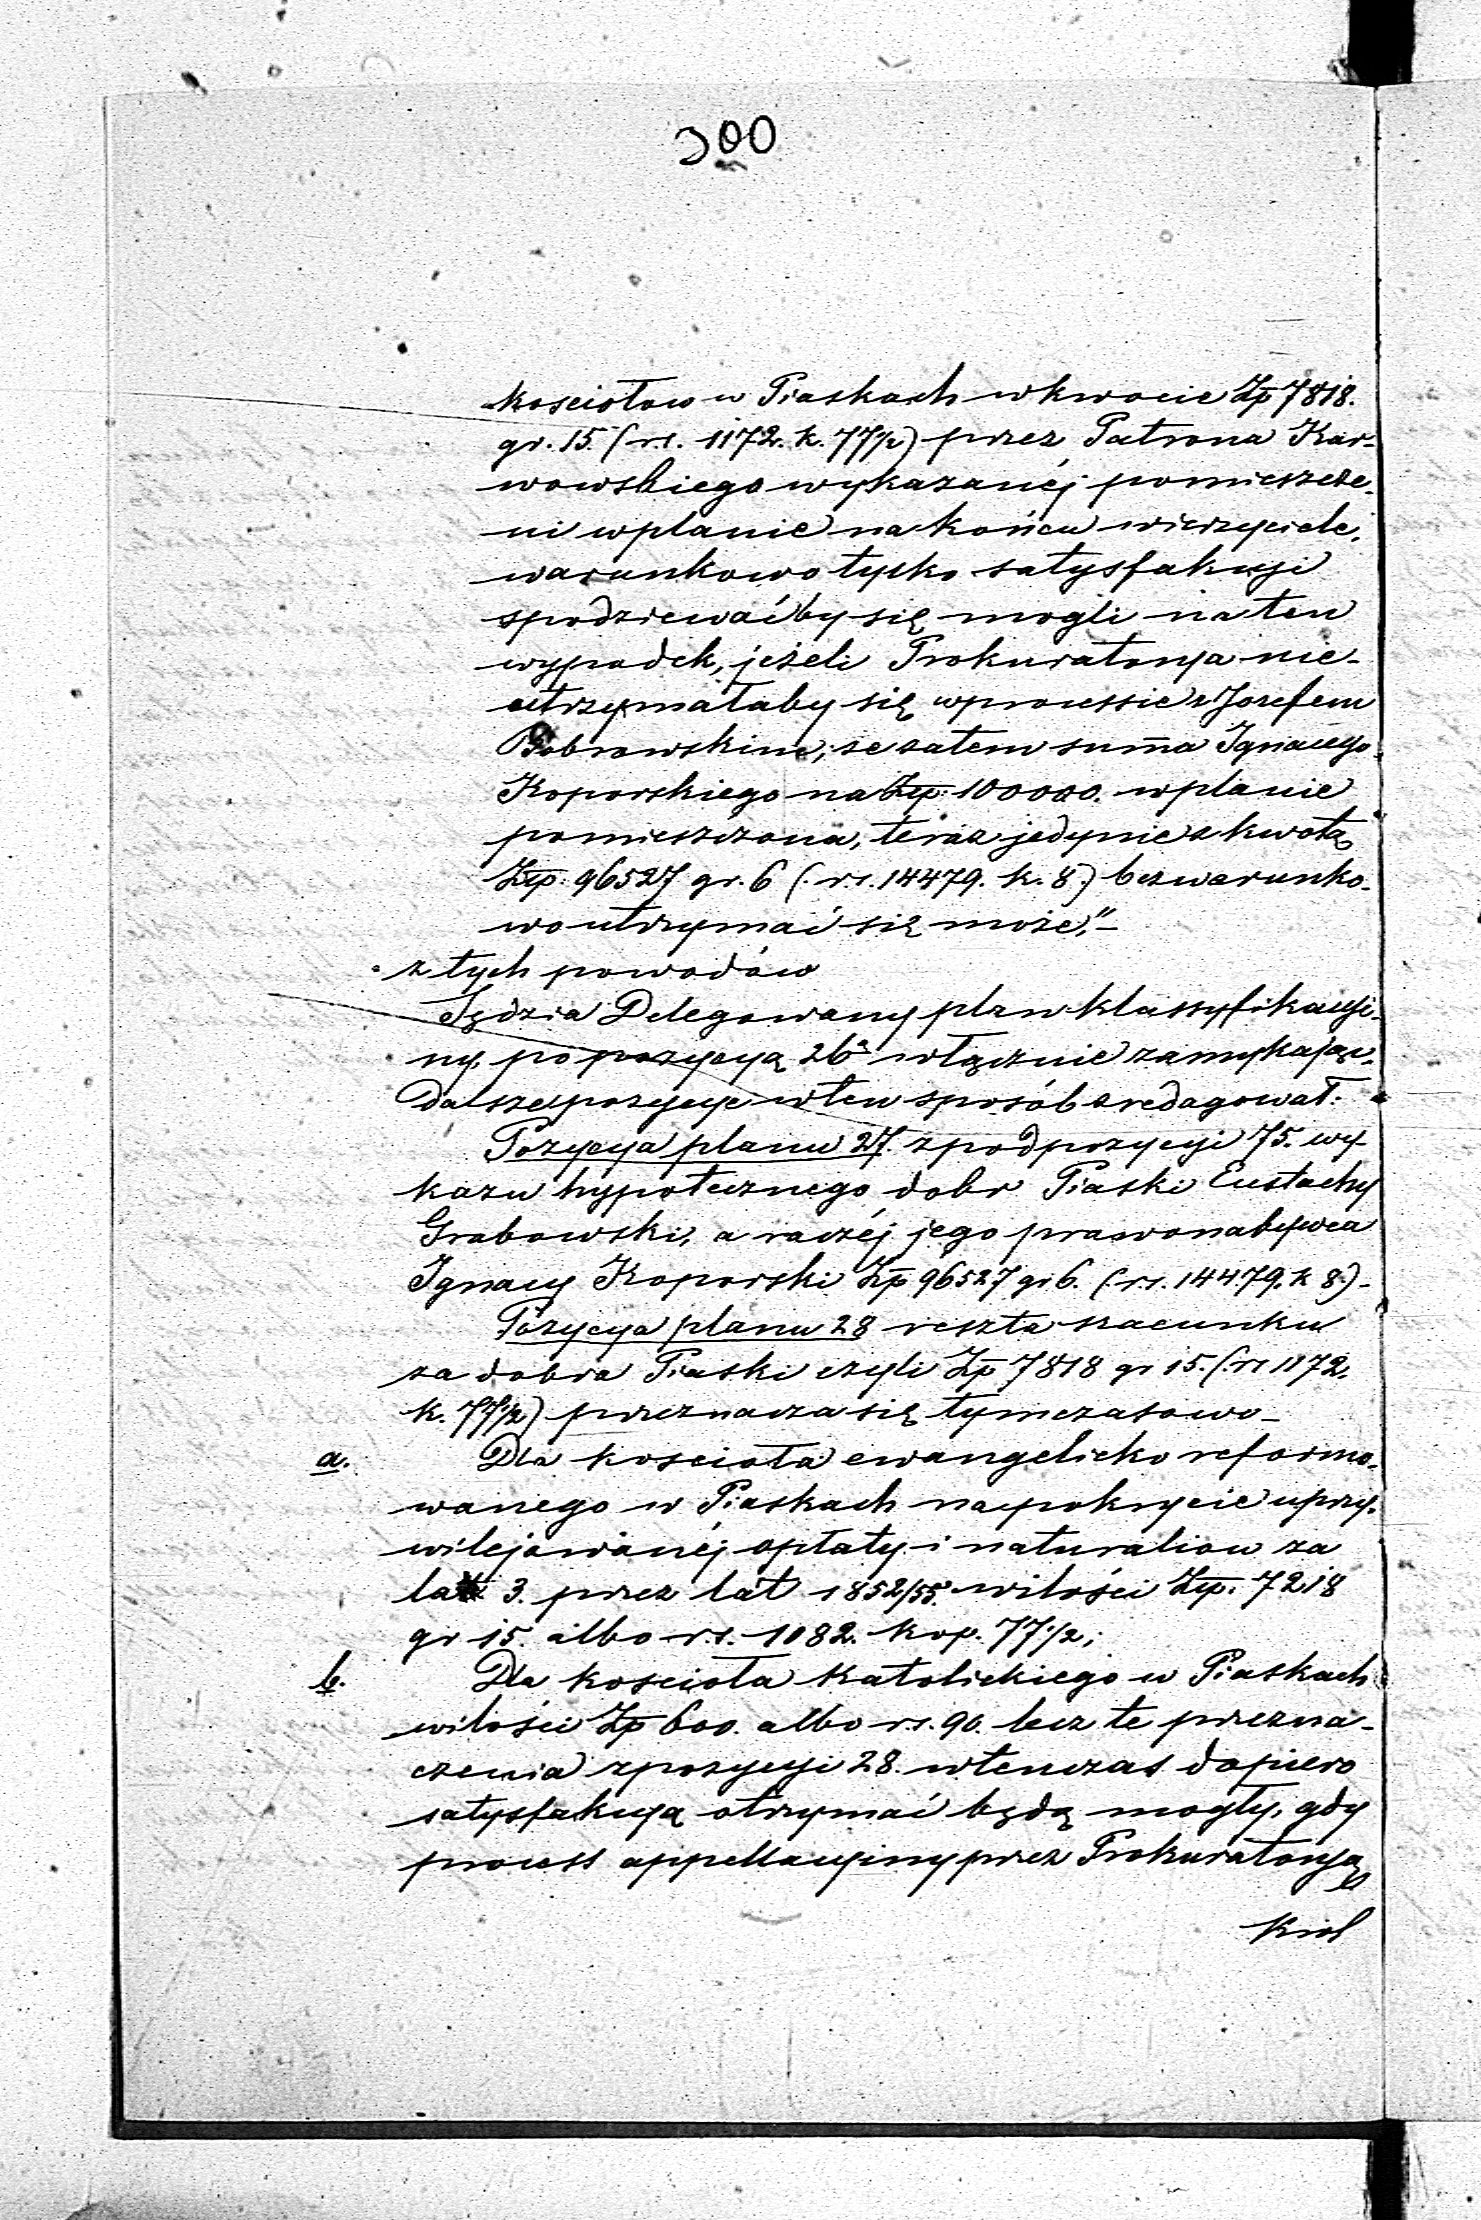 300
kosciołow w Piaskach w kwocie Zp 7818.
gr. 15. (rs. 1172. k. 77½) przez Patrona Kar-
wowskiego wykazanéj pomieszcze-
ni w planie na końcu wierzyciele,
warunkowo tylko satysfakcyi
spodziewać by się mogli na ten
wypadek, jeżeli Prokuratorya nie-
utrzymałaby się w processie z Jozefem
Bobrowskim, ze zatem summa Ignacego
Koporskiego na Złp: 100000. w planie
pomieszczona, teraz jedynie z kwotą
Złp: 96527 gr. 6 (: rs. 14479. k. 8.) bezwarunko-
wo utrzymać się może,"–
z tych powodów
Sędzia Delegowany plan klassyfikacyi-
ny, po pozycyą 26ª włącznie zamykając,
Dalsze pozycye w ten sposób zredagował:
Pozycya planu 27. z pod pozycyi 75. wy-
kazu hypotecznego dobr Piaski Eustachy
Grabowski, a raczéj jego prawonabywca
Ignacy Koporski Zp 96527 gr 6. (rs. 14479. k 8.)–
Pozycya planu 28 reszta szacunku
za dobra Piaski czyli Zp 7818 gr 15. (: rs 1172.
k. 77½) przeznacza się tymczasowo–
a. Dla kościoła ewangelicko reformo-
wanego w Piaskach na pokrycie uprzy-
wilejowanéj opłaty i naturaliow za
lat 3. przez lat 1852/55. w ilości Złp. 7218
gr 15. albo rs. 1082. kop. 77½;
b. Dla kościoła Katolickiego w Piaskach
w ilości Zp 600. albo rs. 90. lecz te przezna-
czenia z pozycyi 28. wtenczas dopiero
satysfakcyą otrzymać będą mogły, gdy
process appellacyiny przez Prokuratoryą
Krol